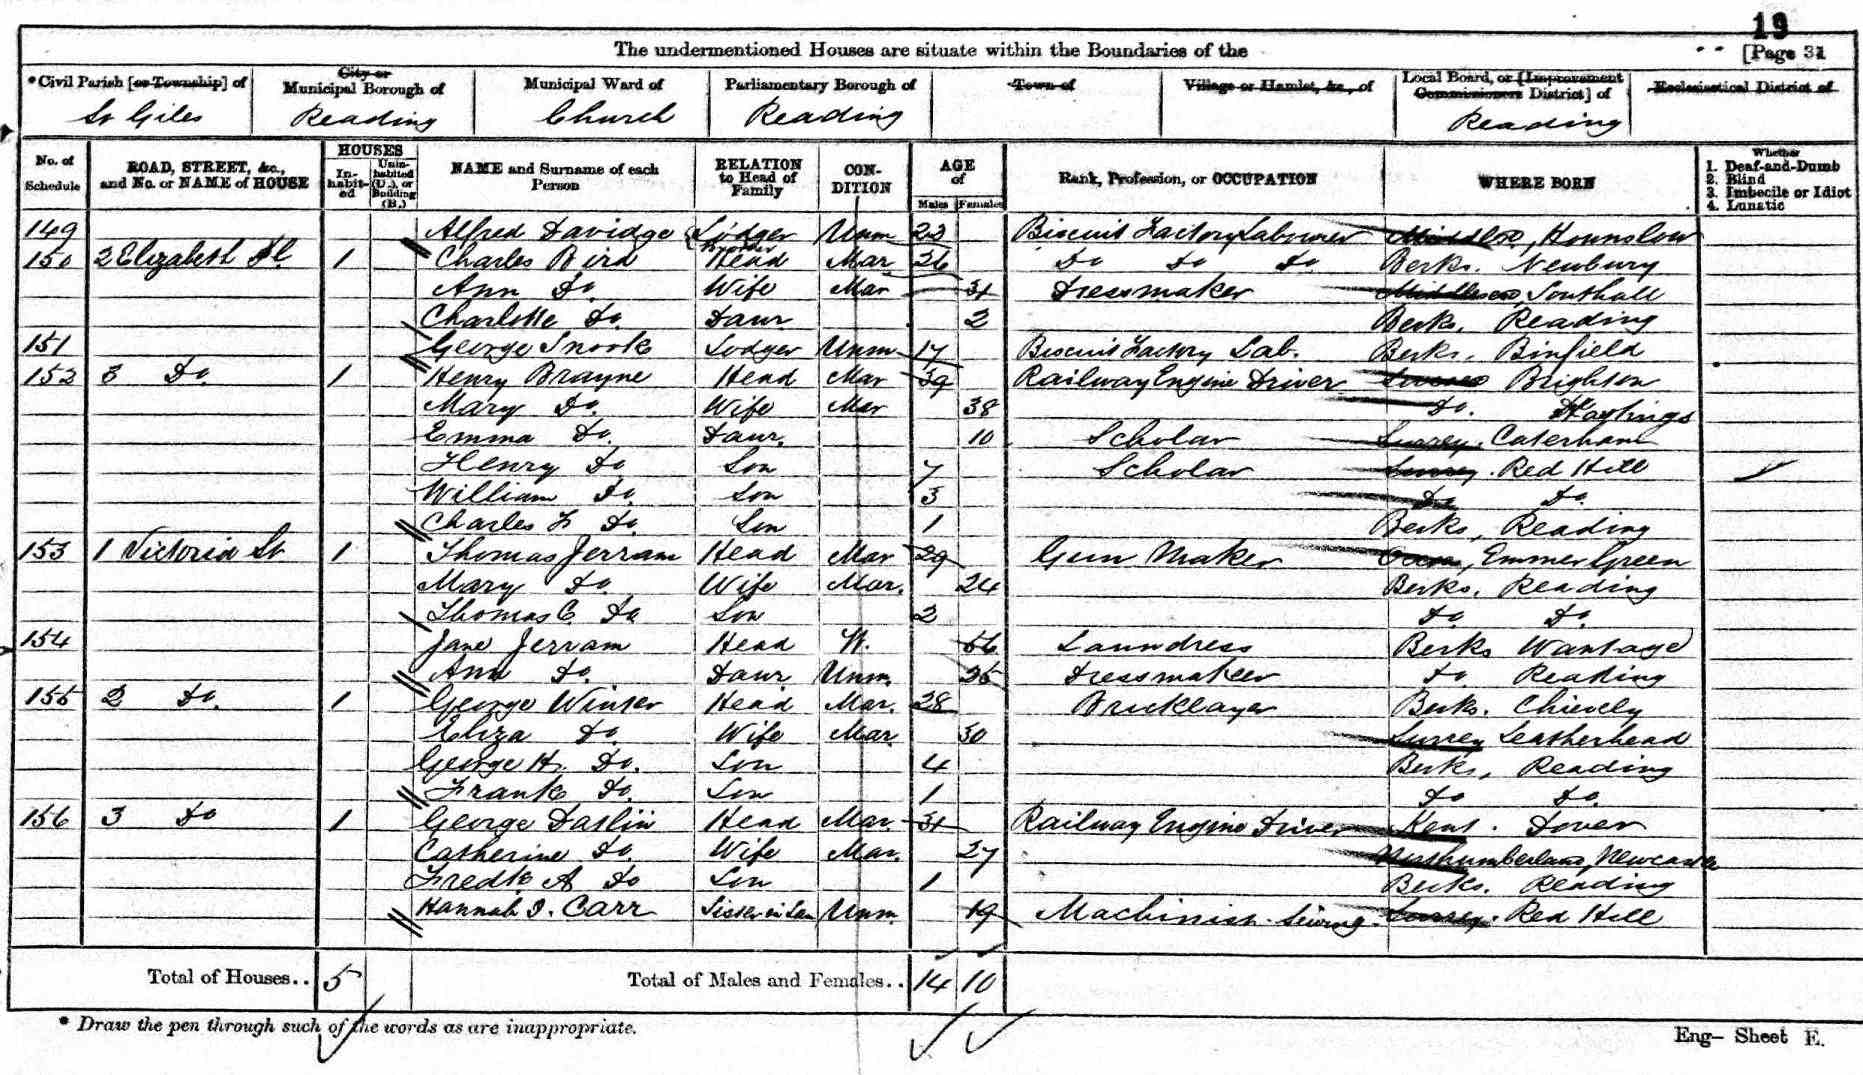 19
[Page 31
The undermentioned Houses are situate within the Boundaries of the
*Civil Parish [or Township] of City or Municipal Borough of Municipal Ward of Parliamentary Borough of Town of Village or Hamlet, &c., of Local Board, or [Improvement Commissioners District] of Ecclesiastical District of
St Giles Reading Church Reading Reading
No. of Schedule ROAD, STREET, &c., and No. or NAME of HOUSE HOUSES Inhabited Uninhabited (U.), or Building (B.) NAME and Surname of each Person RELATION to Head of Family CONDITION AGE of Males Females Rank, Profession, or OCCUPATION WHERE BORN Whether 1. Deaf-and-Dumb 2. Blind 3. Imbecile or Idiot 4. Lunatic
149 Alfred Davidge Lodger Unm Biscuit Factory Labourer Middlsx, Hounslow
150 2 Elizabeth Pl. 1 Charles Bird Head Mar 26 Do Do Do Berks. Newbury
Ann Do. Wife Mar 31 Dressmaker Middlesex, Southall
Charlotte Do. Daur 2 Berks, Reading
151 George Snook Lodger Unm 17 Biscuit Factory Lab. Berks, Binfield
152 3 Do. 1 Henry Brayne Head Mar 39 Railway Engine Driver Sussex Brighton
Mary Do. Wife Mar 38 Do. Hastings
Emma Do. Daur. 10 Scholar Surrey. Caterham
Henry Do Son 7 Scholar Surrey. Red Hill
William Do. Son 3 Do Do.
Charles F Do. Son 1 Berks, Reading
153 1 Victoria St 1 Thomas Jerram Head Mar 29 Gun Maker Oxon, Emmer Green
Mary Do. Wife Mar. 24 Berks, Reading
Thomas C. Do Son 2 Do Do.
154 Jane Jerram Head W. 66 Laundress Berks Wantage
Ann Do. Daur Unm. 25 Dressmaker Do Reading
155 2 Do. 1 George Winter Head Mar. 28 Bricklayer Berks. Chievely
Eliza Do. Wife Mar. 30 Surrey Leatherhead
George H. Do. Son 4 Berks, Reading
Frank Do. Son 1 Do Do.
156 3 Do 1 George Daslin Head Mar. 31 Railway Engine Driver Kent. Dover
Catherine Do. Wife Mar. 27 Northumberland, Newcastle
Fredk A Do Son 1 Berks. Reading
Hannah I. Carr Sister in Law Unm 19 Machinist. Sewing. Surrey. Red Hill
Total of Houses.. 5 Total of Males and Females.. 14 10
* Draw the pen through such of the words as are inappropriate.
Eng— Sheet E.